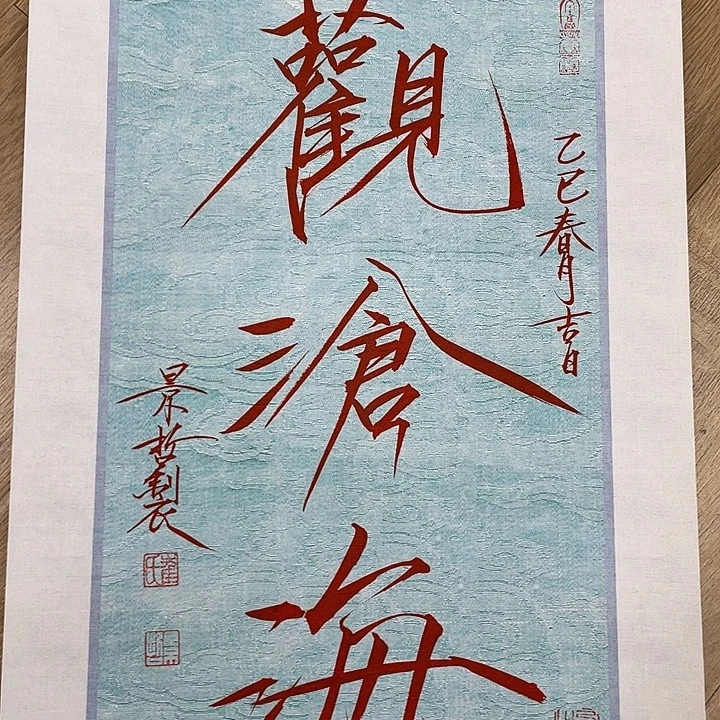 觀滄海
乙巳春月吉日
景哲製